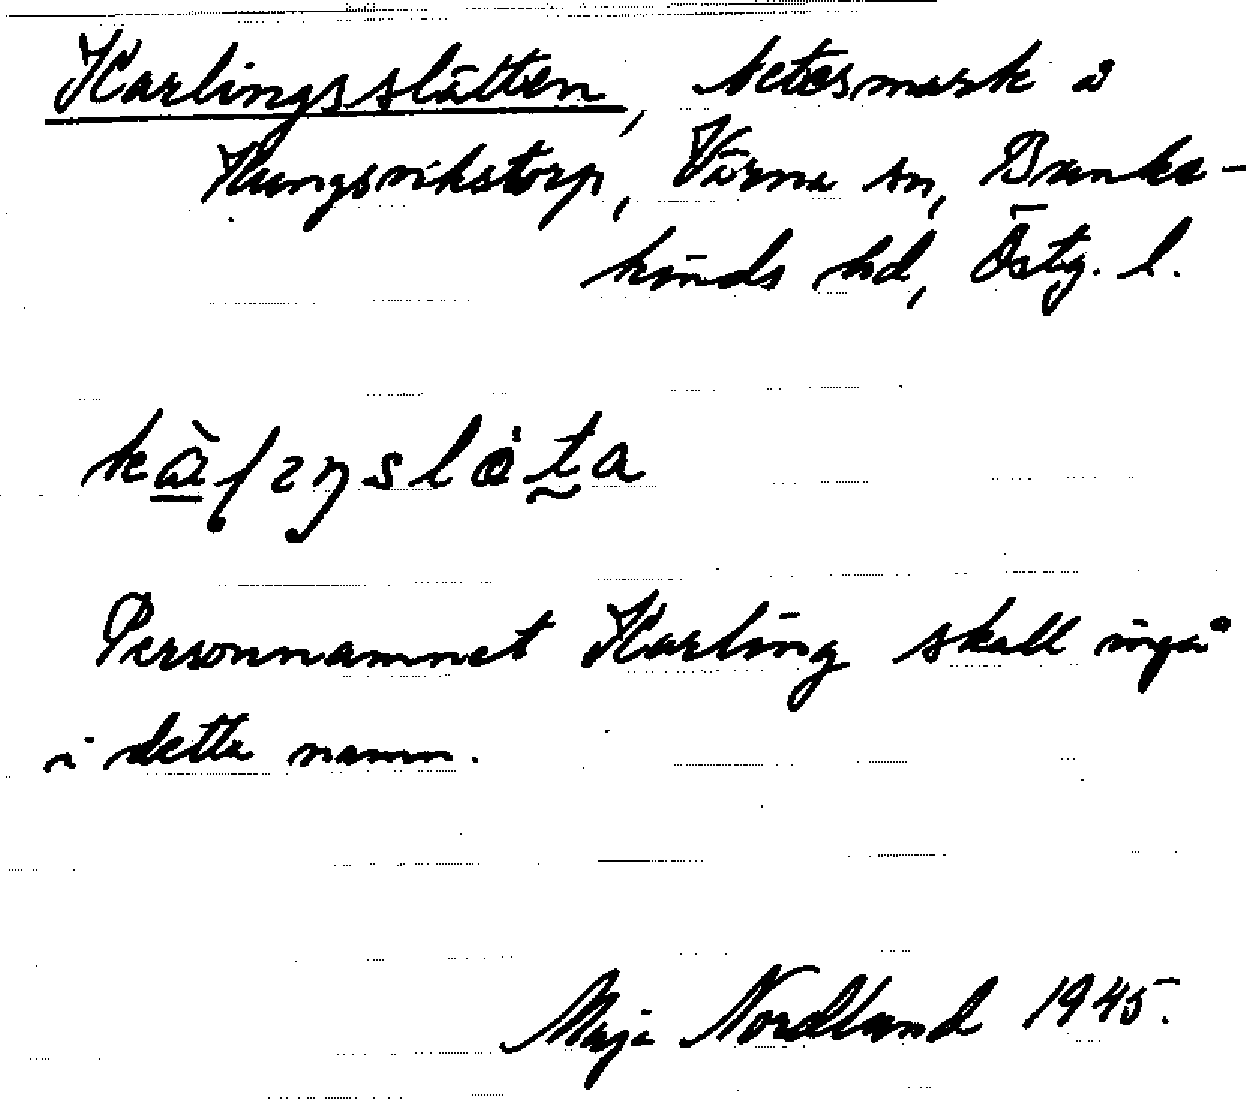 Karlingsslätten, betesmark å
Kungsrikstorp, Värna sn, Banke-
kinds hd, Östg. l.
Personnamnet Karling skall ingå
i detta namn.
Maja Nordlund 1945.